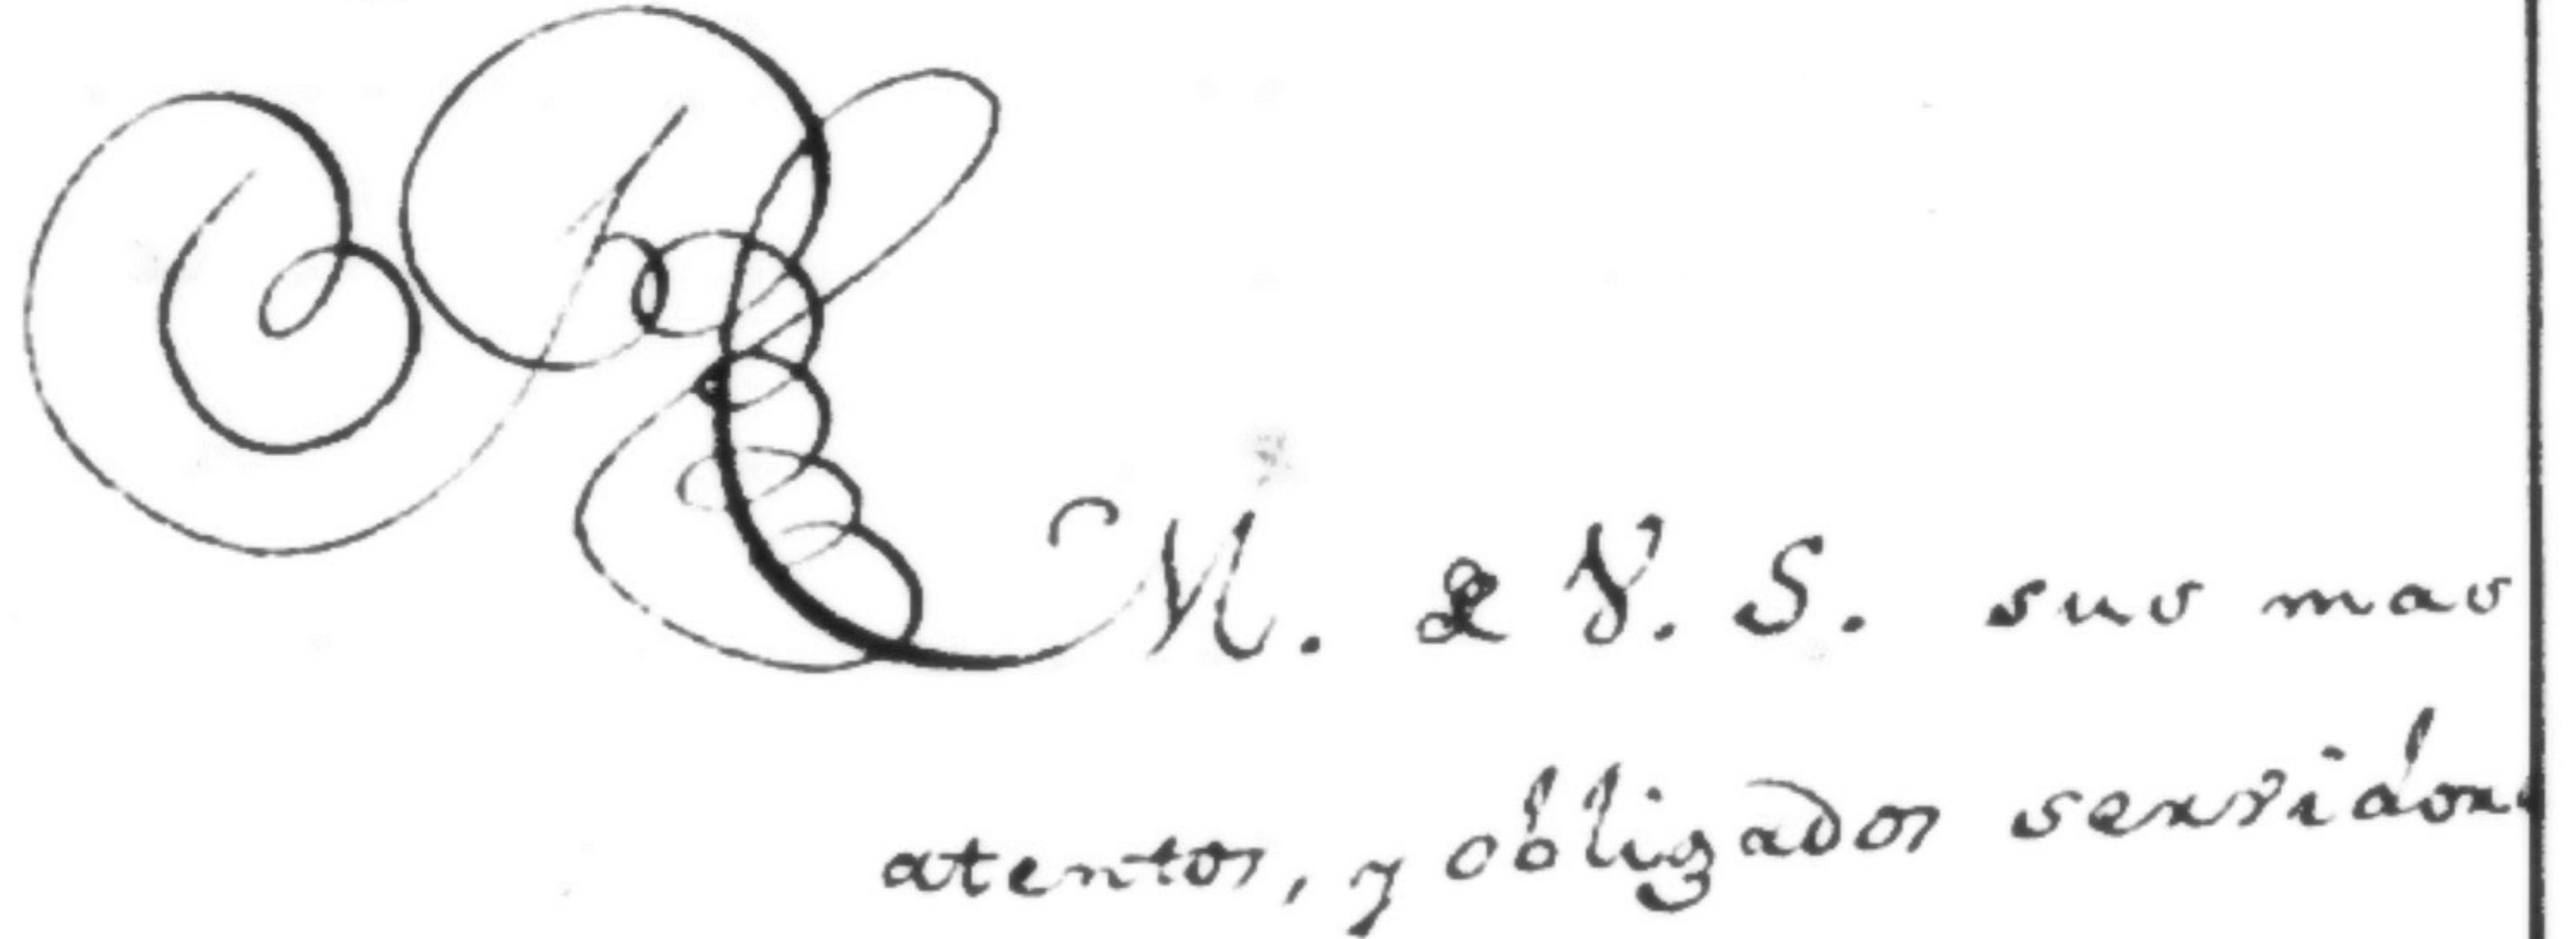 M. de V. S. sus mas
atentos, y obligados servidore